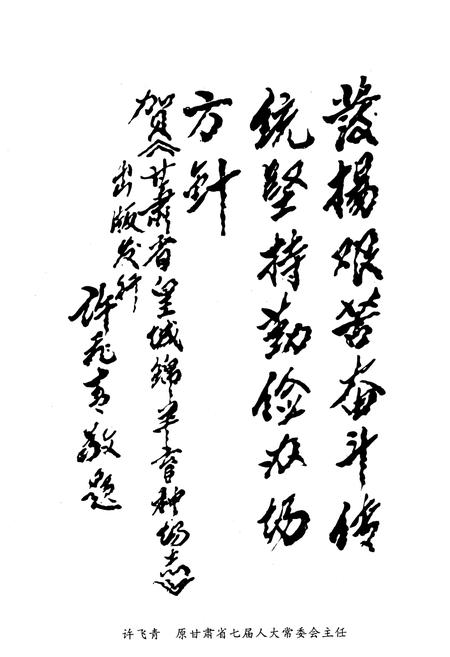 發揚艰苦奋斗传
统坚持勤俭办场
方針
贺《甘肃省皇城绵羊育种场志》
出版发行
许飞青敬题
许飞青　原甘肃省七届人大常委会主任